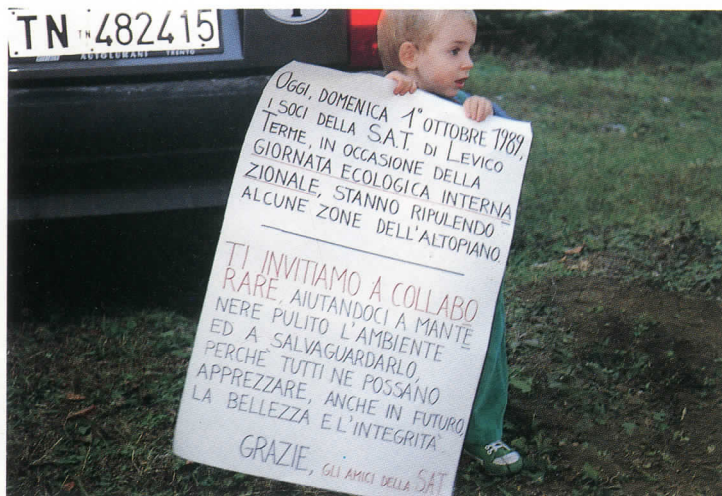 TN TN 482415
AUTOLUBANI TRENTO
OGGI, DOMENICA 1° OTTOBRE 1989,
I SOCI DELLA S.A.T. DI LEVICO
TERME, IN OCCASIONE DELLA
GIORNATA ECOLOGICA INTERNA
ZIONALE, STANNO RIPULENDO
ALCUNE ZONE DELL'ALTOPIANO.
TI INVITIAMO A COLLABO
RARE, AIUTANDOCI A MANTE
NERE PULITO L'AMBIENTE
ED A SALVAGUARDARLO,
PERCHÈ TUTTI NE POSSANO
APPREZZARE, ANCHE IN FUTURO,
LA BELLEZZA E L'INTEGRITÀ
GRAZIE, GLI AMICI DELLA SAT